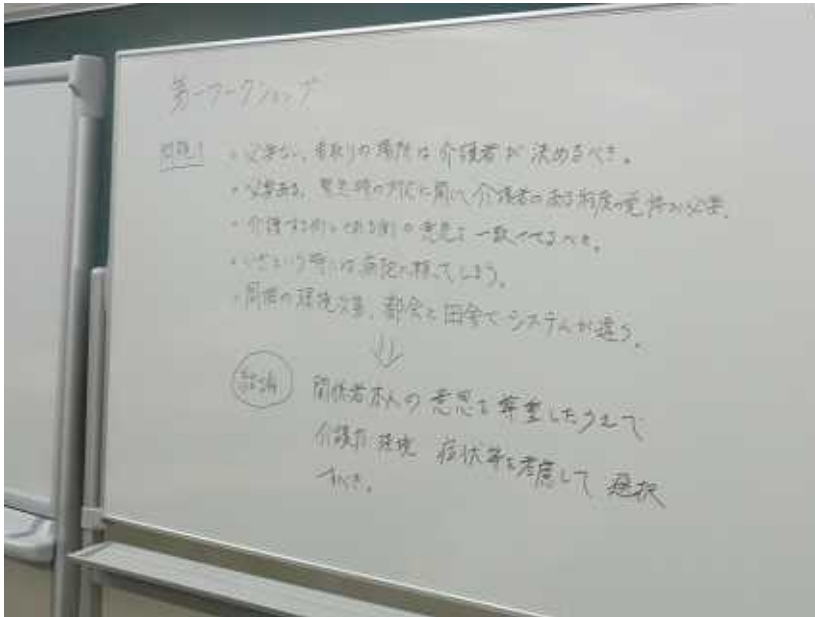 第一ワークショップ
問題1 ・必要ない、看取りの場所は介護者が決めるべき。
・必要ある、緊急時の対応に関して介護者のある程度の覚悟が必要。
・介護する側とされる側の意思を一致させるべき。
・いざという時には病院に頼ってしまう。
・周囲の環境次第、都会と田舎でシステムが違う。
⇓
結論 関係者本人の意思を尊重したうえで
介護力 環境 症状等を考慮して選択
すべき。